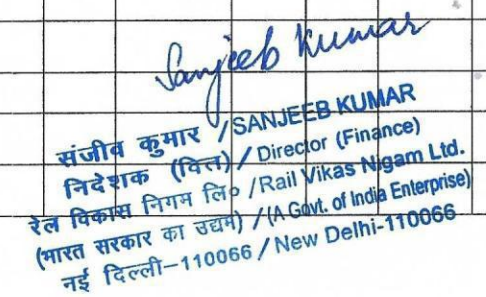 Sanjeeb Kumar
संजीव कुमार / SANJEEB KUMAR
निदेशक (वित्त) / Director (Finance)
रेल विकास निगम लि० / Rail Vikas Nigam Ltd.
(भारत सरकार का उद्यम) / (A Govt. of India Enterprise)
नई दिल्ली-110066 / New Delhi-110066